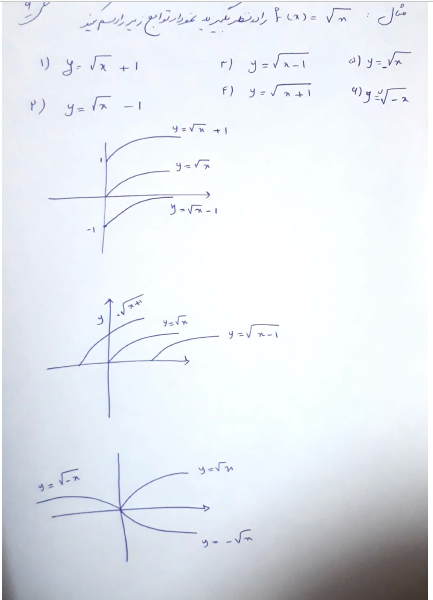 مثال : f(x) = √x را در نظر بگیرید نمودار توابع زیر را رسم کنید
۱) y = √x + 1 ۳) y = √x-1 ۵) y = -√x
۲) y = √x - 1 ۴) y = √x+1 ۶) y = √-x
y = √x + 1
1
y = √x
y = √x - 1
-1
y = √x+1
y = √x
y = √x-1
y = √-x
y = √x
y = -√x